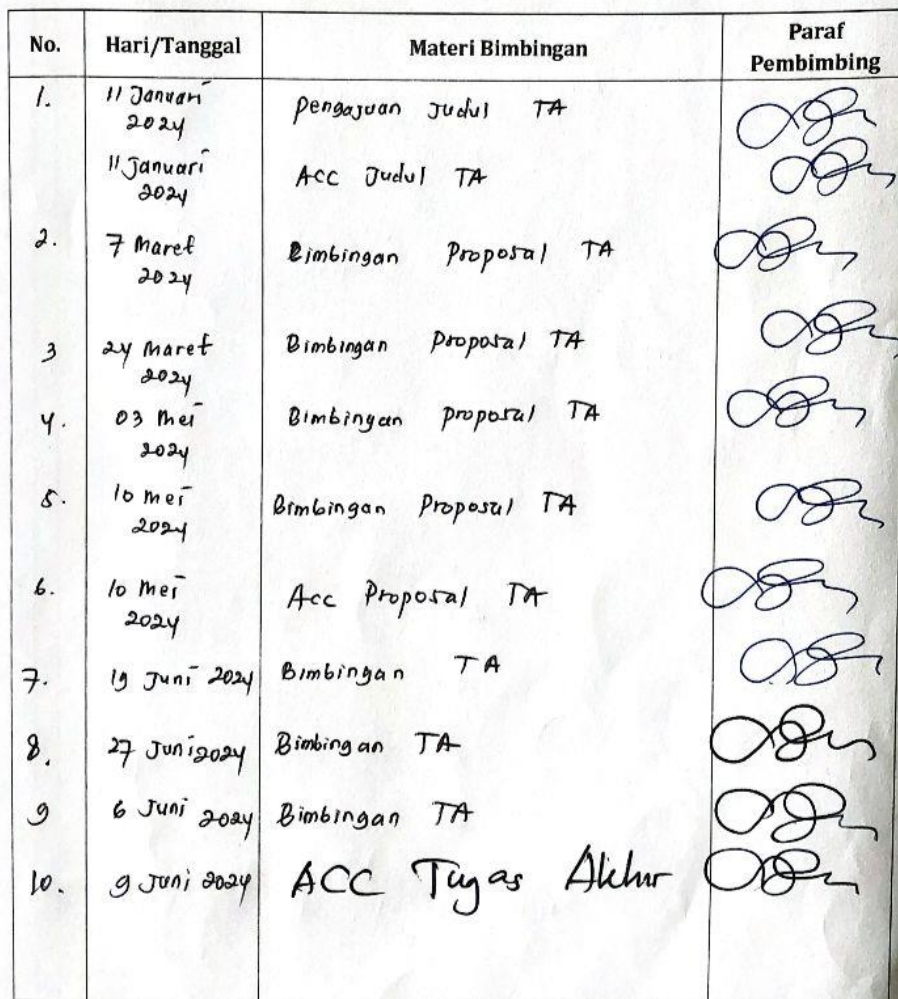 No. Hari/Tanggal Materi Bimbingan Paraf Pembimbing
1. 11 Januari 2024 Pengajuan Judul TA
11 Januari 2024 ACC Judul TA
2. 7 Maret 2024 Bimbingan Proposal TA
3 24 Maret 2024 Bimbingan Proposal TA
4. 03 Mei 2024 Bimbingan Proposal TA
5. 10 Mei 2024 Bimbingan Proposal TA
6. 10 Mei 2024 Acc Proposal TA
7. 19 Juni 2024 Bimbingan TA
8. 27 Juni 2024 Bimbingan TA
9 6 Juni 2024 Bimbingan TA
10. 9 Juni 2024 ACC Tugas Akhir